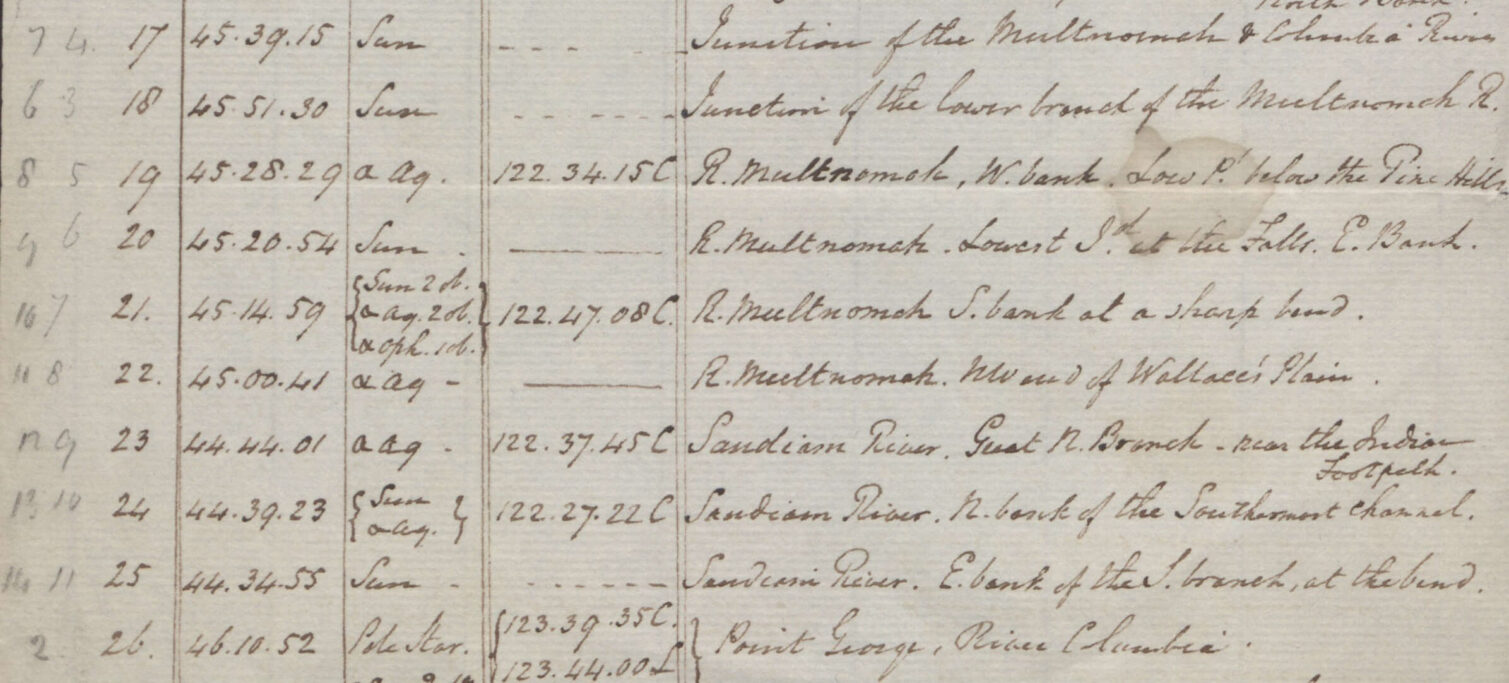 North Bank.
7 4. 17 45.39.15 Sun - - - - Junction of the Multnomah & Columbia River
6 3 18 45.51.30 Sun - - - - - - Junction of the lower branch of the Multnomah R.
8 5 19 45.28.29 α Aq. 122.34.15 C R. Multnomah, W. bank. Low Pt. below the Pine Hills
9 6 20 45.20.54 Sun . —— R. Multnomah. Lowest Id. at the Falls. E. Bank.
10 7 21. 45.14.59 { Sun 2 ob. α Aq. 2 ob. α Oph. 1 ob. } 122.47.08 C. R. Multnomah S. bank at a sharp bend.
11 8 22. 45.00.41 α Aq - —— R. Multnomah. NW end of Wallace's Plain.
12 9 23 44.44.01 α Aq - 122.37.45 C Sandiam River. Great N. Branch - near the Indian
Footpath.
13 10 24 44.39.23 { Sun α Aq. } 122.27.22 C Sandiam River. N. bank of the Southermost Channel.
14 11 25 44.34.55 Sun - - - - - - - Sandiam River. E. bank of the S. branch, at the bend.
2. 26. 46.10.52 Pole Star. { 123.39.35 C. 123.44.00 L } Point George, River Columbia.